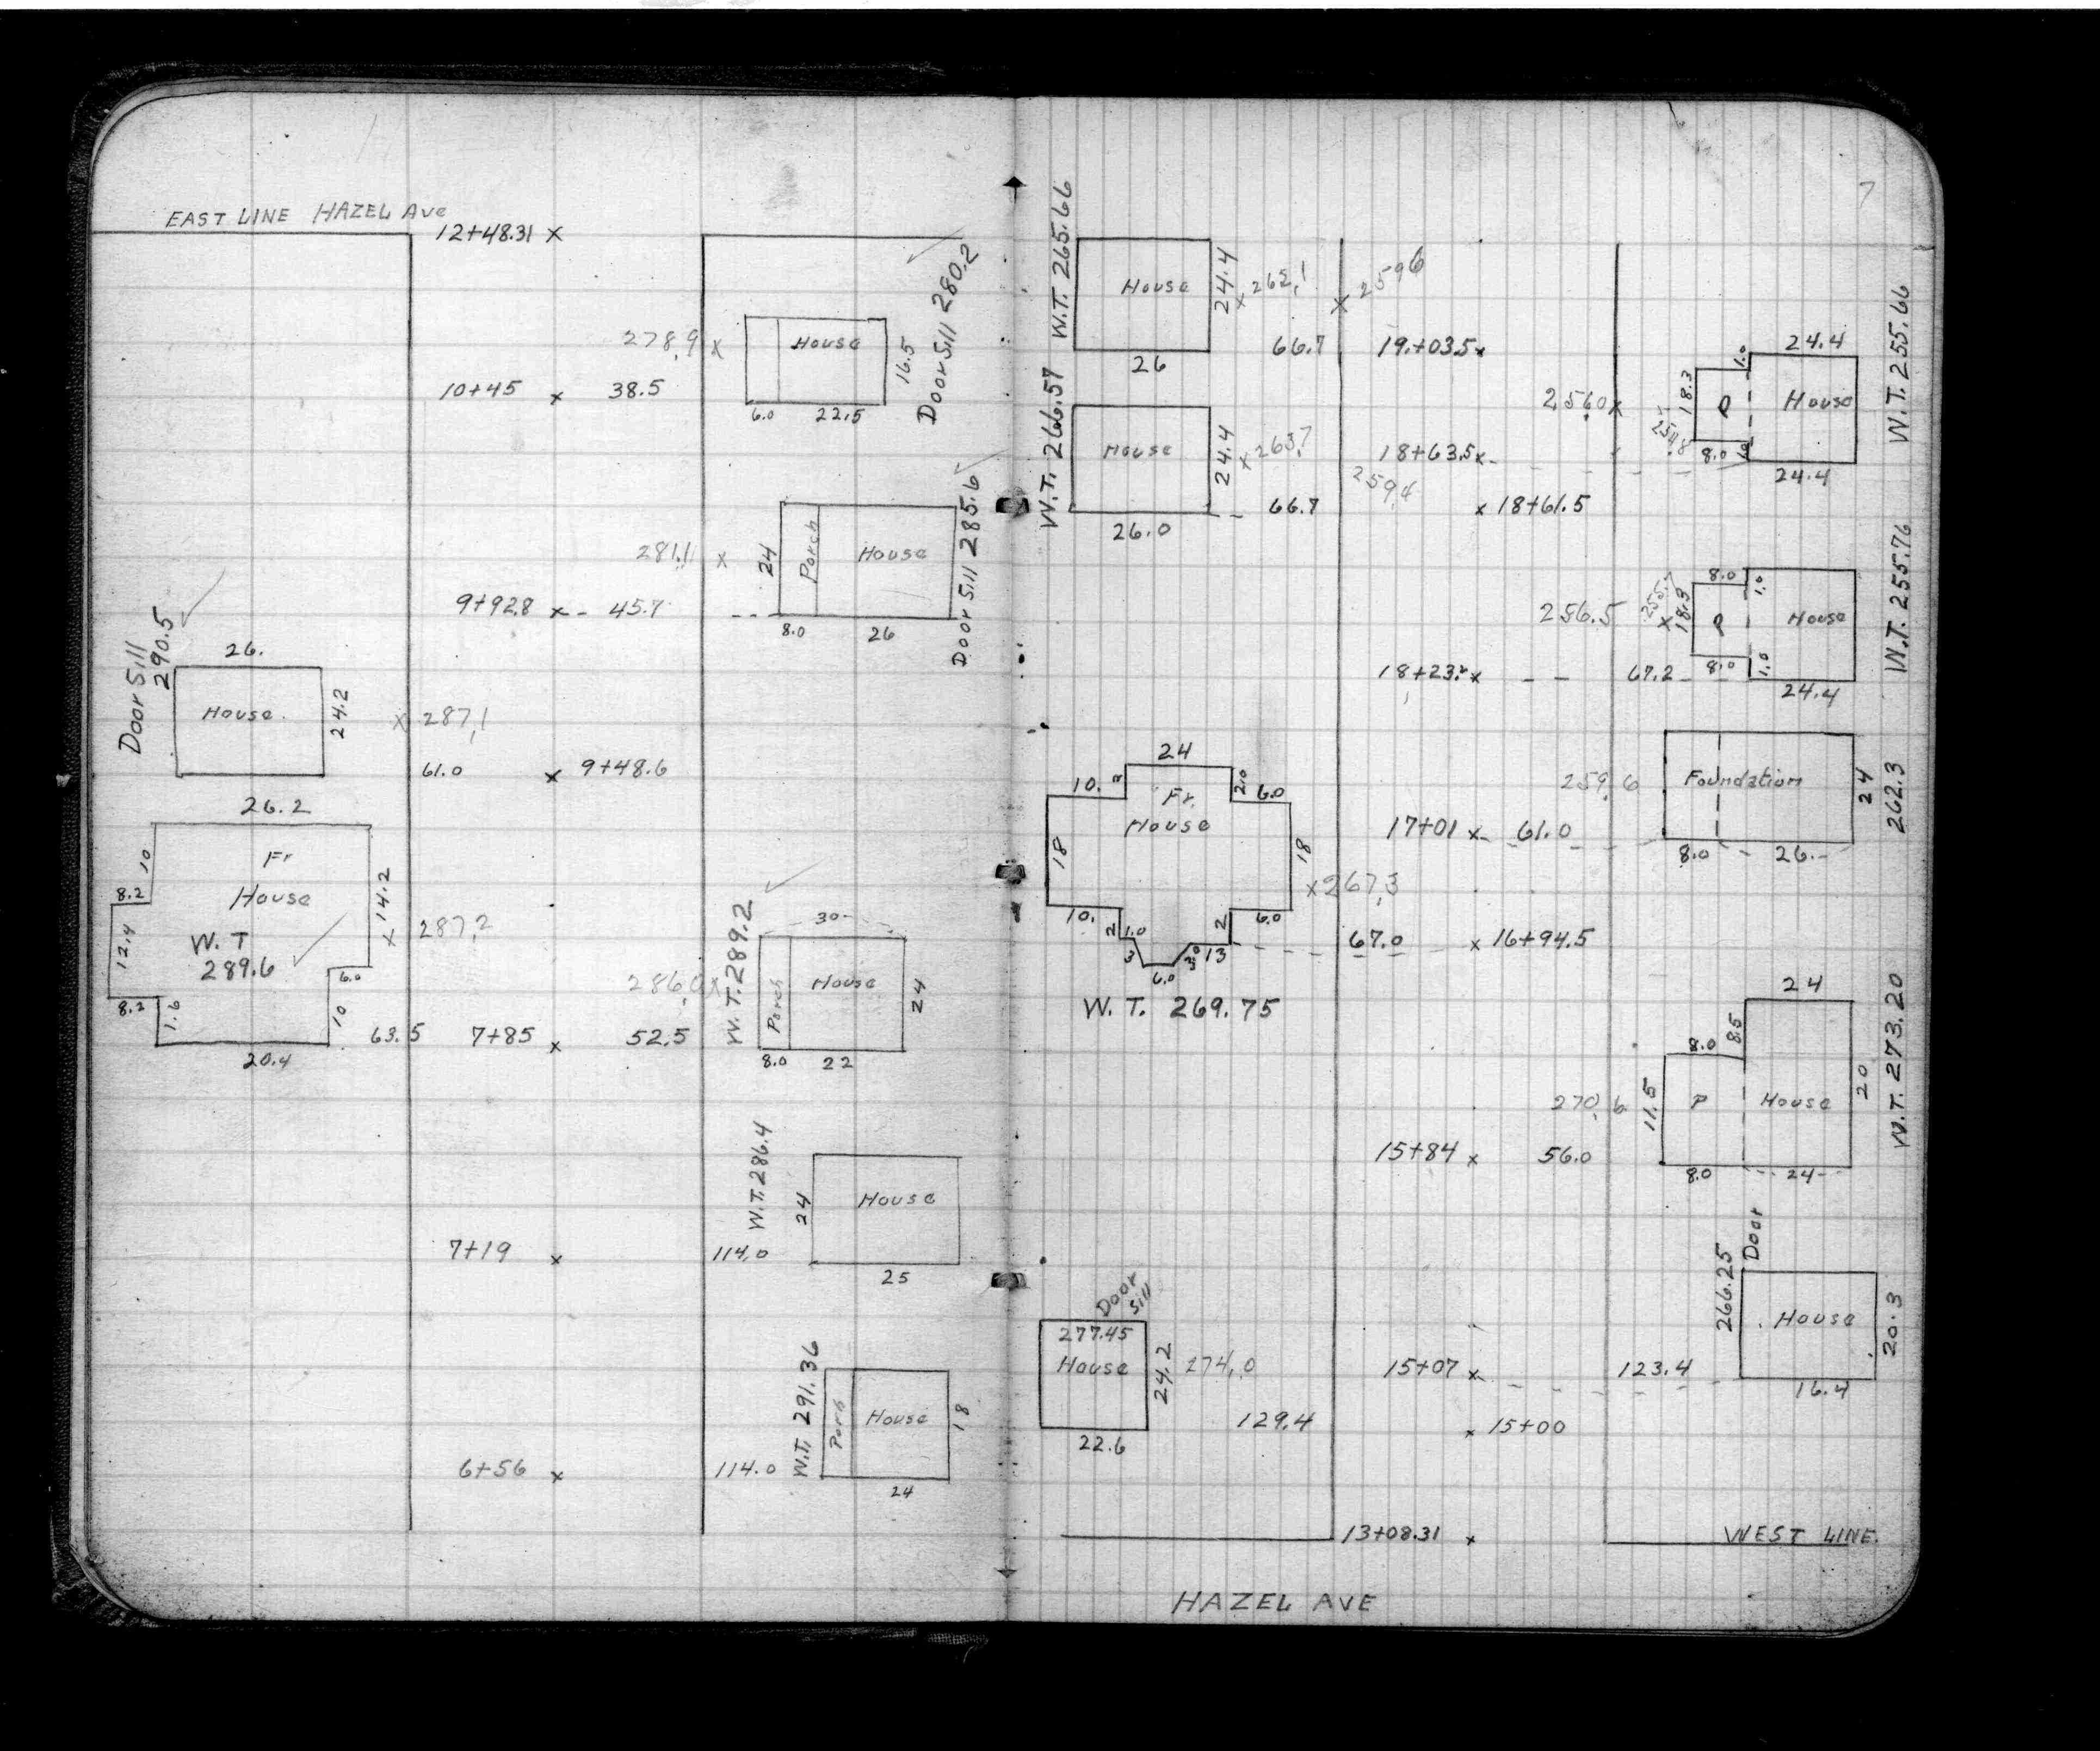 EAST LINE HAZEL Ave
12+48.31 x
Door Sill 280.2
278.9 x
House
16.5
10+45 x 38.5
6.0 22.5
Door Sill 285.6
281.1 x
24
Porch
House
9+92.8 x - 45.7
8.0 26
Door Sill
290.5
26.
House
24.2
x 287.1
61.0 x 9+48.6
26.2
10
Fr
House
8.2
12.4
14.2
x 287.2
W. T
289.6
6.0
8.2
1.6
10
20.4
63.5 7+85 x 52.5
W.T. 289.2
30
286.0 x
Porch
House
24
8.0 22
W.T. 286.4
24
House
7+19 x 114.0
25
W.T. 291.36
Porh
House
18
6+56 x 114.0
24
7
W.T. 265.66
House
24.4
x 262.1
x 259.6
26
66.7 19+03.5 x
W.T. 266.57
House
24.4
x 263.7
18+63.5 x
259.4
26.0
66.7
x 18+61.5
W.T. 255.66
24.4
1.0
18.3
P
House
256.0 x
254.8
8.0 1.0
24.4
W.T. 255.76
8.0 1.0
256.5
255.7
x 18.3
P
House
18+23. x 67.2
8.0 1.0
24.4
24
10. 2 2.0 6.0
Fr.
House
18
18
x 267.3
10. 2 1.0 2 6.0
3 6.0 3.0 13
67.0 x 16+94.5
W. T. 269.75
259.6
Foundation
24
262.3
17+01 x 61.0
8.0 26.
24
8.5
8.0
W.T. 273.20
270.6
11.5
P
House
20
15+84 x 56.0
8.0 24
Door
266.25
House
20.3
15+07 x 123.4
16.4
Door
Sill
277.45
House
24.2
274.0
129.4
x 15+00
22.6
13+08.31 x
WEST LINE.
HAZEL AVE